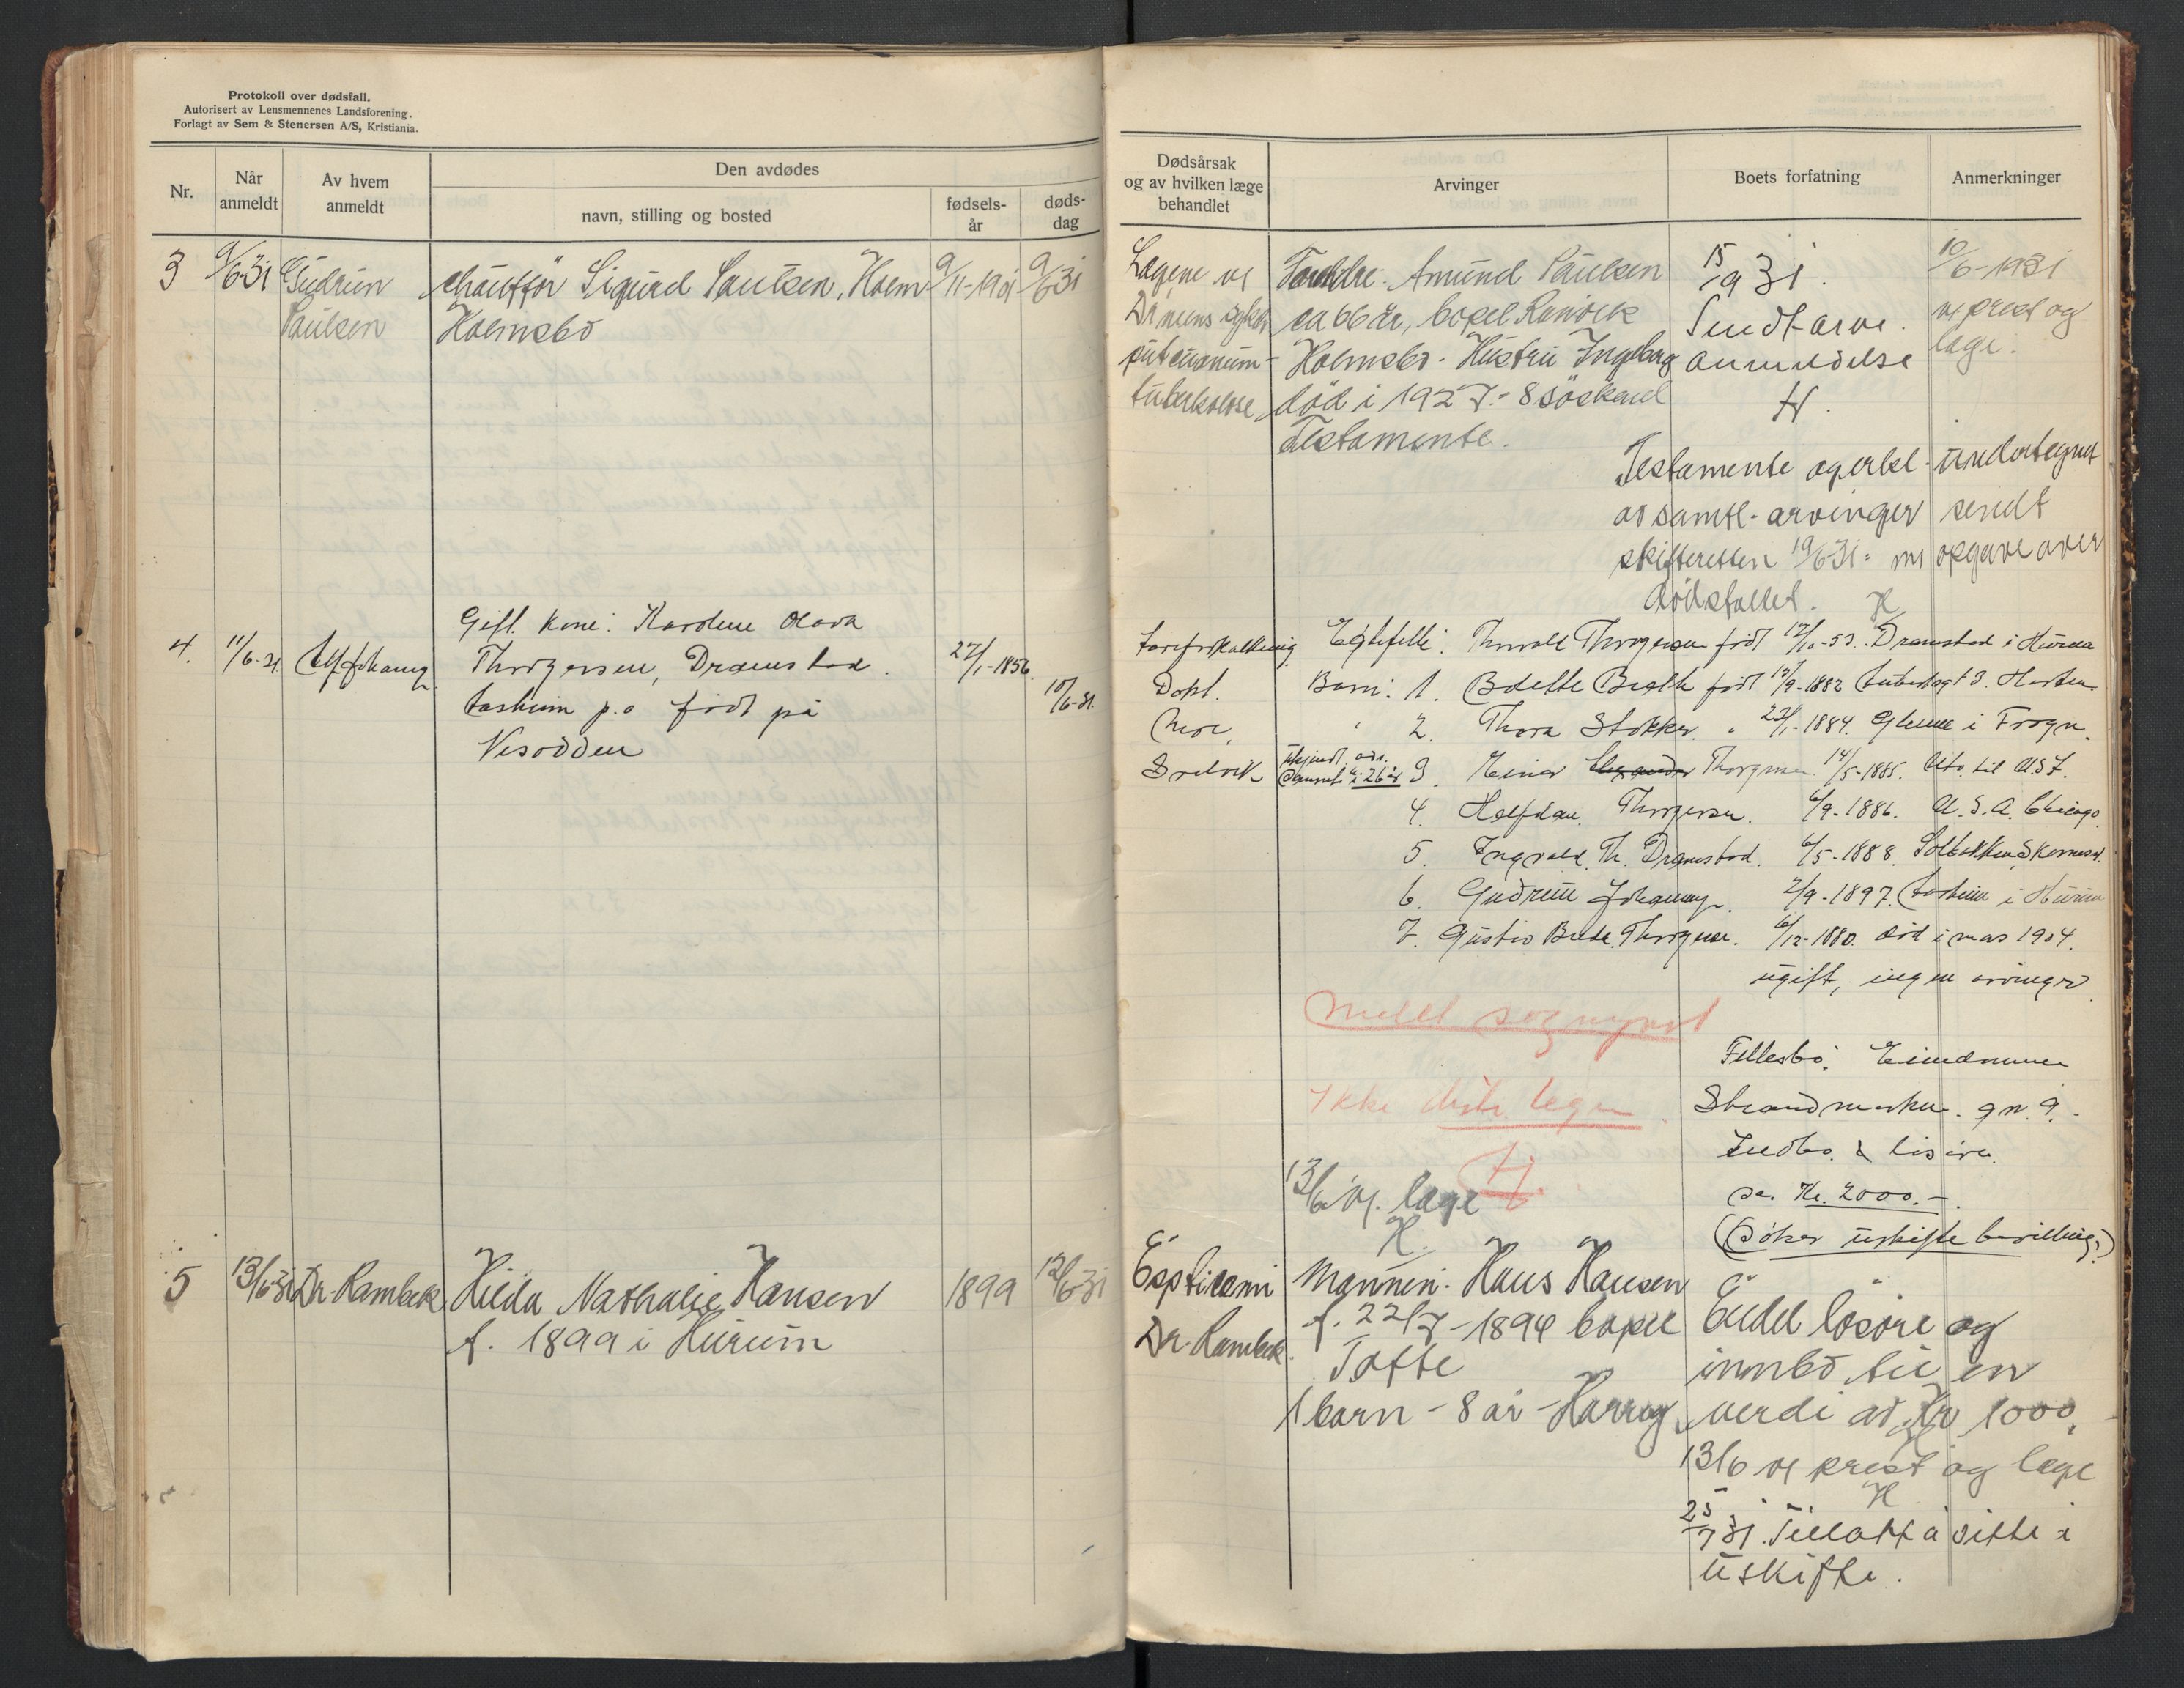 Protokoll over dødsfall.
Autorisert av Lensmennenes Landsforening.
Forlagt av Sem & Stenersen A/S, Kristiania.
Nr.
Når anmeldt
Av hvem anmeldt
Den avdødes
navn, stilling og bosted
fødsels-år
døds-dag
3 9/6-31 Gudrun chauffør Sigurd Paulsen, Holm 9/11-1901 9/6-31
Paulsen Holmsbo
Gift. Kone: Karoline Olava
4. 11/6-31 Thorgersen, Dramstad. 27/1-1856
p.o født på 10/6-31.
Nesodden
5 13/6-31 Dr. Rambek Hilda Nathalie Hansen 1899 12/6-31
f. 1899 i Hurum
Dødsårsak
og av hvilken læge
behandlet
Arvinger
Boets forfatning
Anmerkninger
Lægene ve Foreldre: Amund Paulsen 15/9 31. 10/6-1931
ca 66 år, bopel Rønvik Sendt arve ve prest og
Holmsbo. Hustru Ingeborg anmeldelse læge.
tuberkulose, død i 1927.- 8 søsken H.
Testamente.
Testamente og erkl. undertegnet
av samtl. arvinger sendt
skifteretten 19/6-31. m opgave over
dødsfallet. H
Ektefelle: Thorvald Thorgersen født 12/10-53. Dramstad i Hurum
Dokt. Barn: 1. Bolette født 19/9-1882
Moe, " 2. Thora Stokker. " 23/1-1884. Glenne i Frogn.
3. Einar Thorgersen. 14/5-1885. til U.S.A.
4. Halfdan Thorgersen. 6/9-1886. U.S.A. Chicago
5. Ingvald Th. Dramstad. 6/5-1888. Solbakken
6. Gudrun 2/9-1897. i Hurum
7. Gustav Thorgersen. 6/12-1880. død i mars 1904.
ugift, ingen arvinger.
Meldt sogneprest
Fellesbo. Eiendommen
Ikke distr. legen
Strandmarken. gn. 9.
H.
Indbo & løsøre
13/6 ve. læge
ca. Kr. 2000.-
H.
(Søker uskifte bevilling.)
Mannen: Hans Hansen
Dr. Rambek f. 22/7-1894 bopel Endel løsøre og
Tofte innbo til en
1 barn - 8 år - Harry verdi av Kr 1000,
13/6 ve prest og læge
H
25/7 31. Tillatt å sitte i
uskifte.